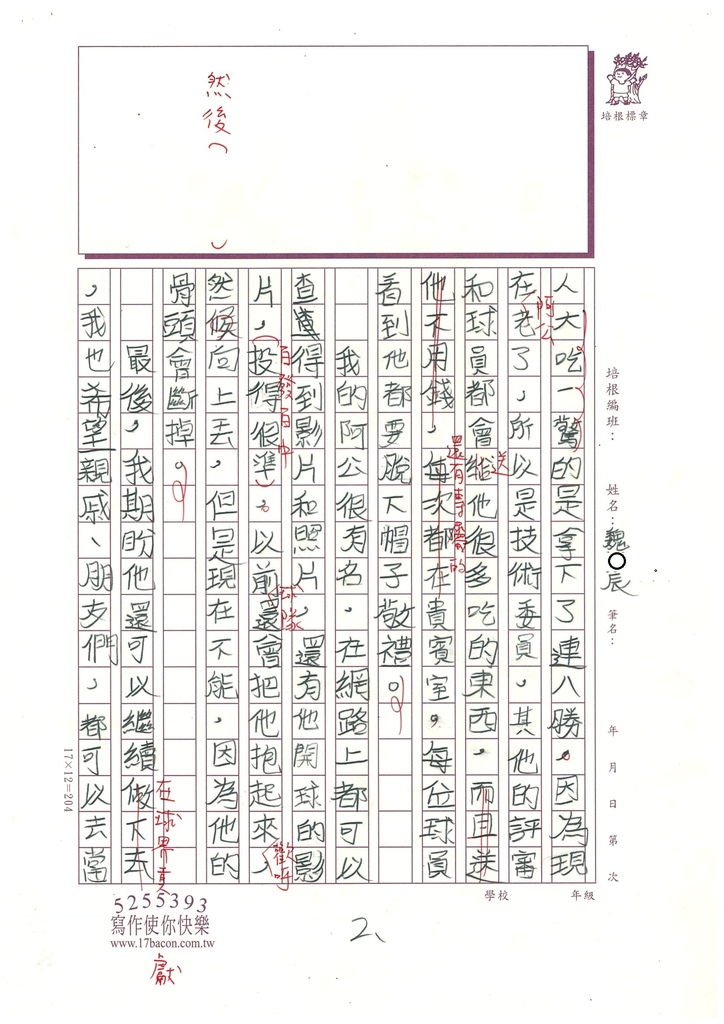 然後（ ）
培根標章
培根編班：
姓名：魏○辰
筆名：
年 月 日 第 次
人大吃一驚的是拿下了連八勝。因為現
在老了，所以是技術委員，其他的評審
阿公
和球員都會給他很多吃的東西，而且送
送
他不用錢，每次都在貴賓室。每位球員
還有專屬的
看到他都要脫下帽子敬禮。
我的阿公很有名，在網路上都可以
查得到影片和照片，還有他開球的影
百發百中
球隊
片，（投得很準）。以前還會把他抱起來，
歡呼
然候向上丟，但是現在不能，因為他的
骨頭會斷掉。
最後，我期盼他還可以繼續做下去
在球界貢獻
，我也希望親戚、朋友們，都可以去當
17×12=204
學校
年級
5255393
寫作使你快樂
www.17bacon.com.tw
2、